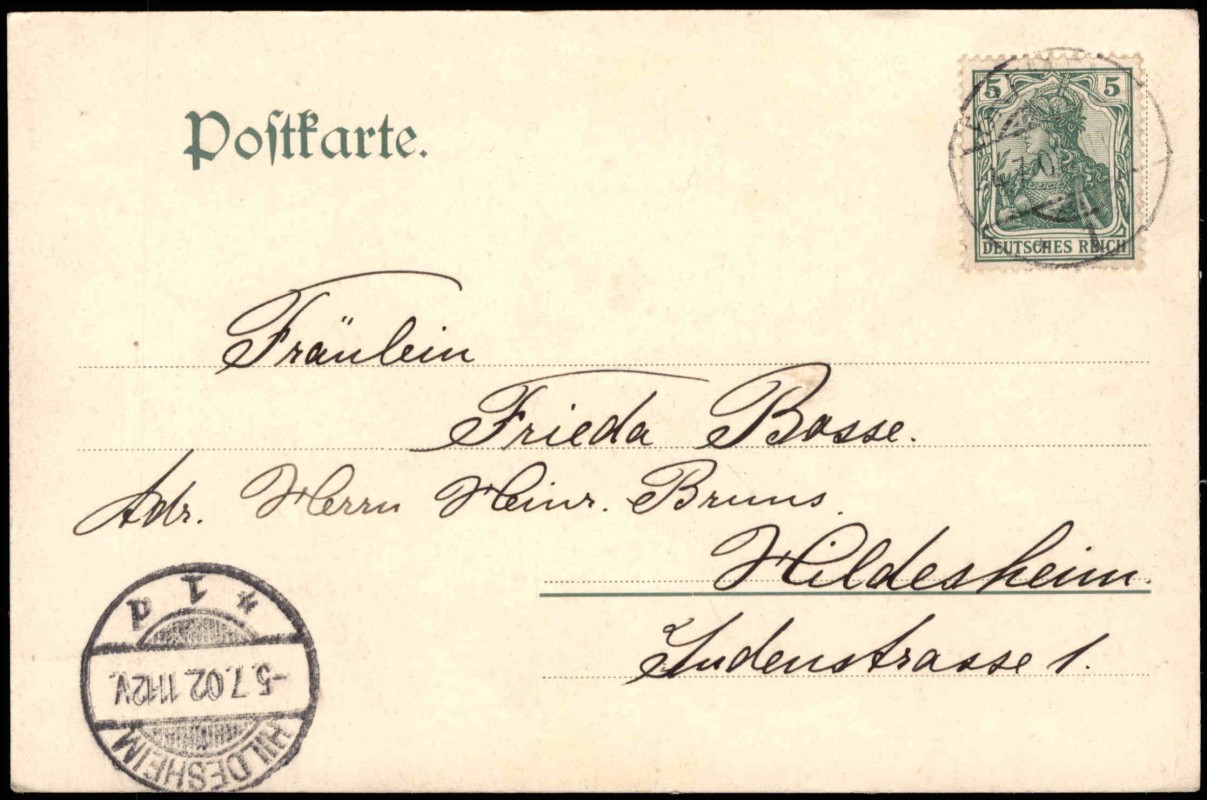 Postkarte.
5 5
DEUTSCHES REICH
Fräulein
Frieda Bosse.
Adr. Herrn Heinr. Bruns.
Hildesheim.
Judenstrasse 1.
* 1 d
-5.7.02 11-12V.
HILDESHEIM